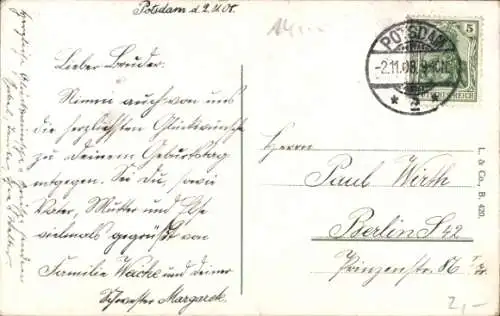 Potsdam d. 2.11.08.
14.--
Lieber Bruder.
Nimm auch von uns
die herzlichsten Glückwünsche
zu deinem Geburtstag
entgegen. Sei Du, sowie
Vater, Mutter und Ilse
vielmals gegrüßt von
Familie Wache und deiner
Schwester Margaret.
Herzliche Glückwünsche
POTSDAM
-2.11.08.
* 2 *
5
L. & Co., B. 420.
Herrn
Paul Wirth
Berlin S 42
Prinzenstr.
2,-